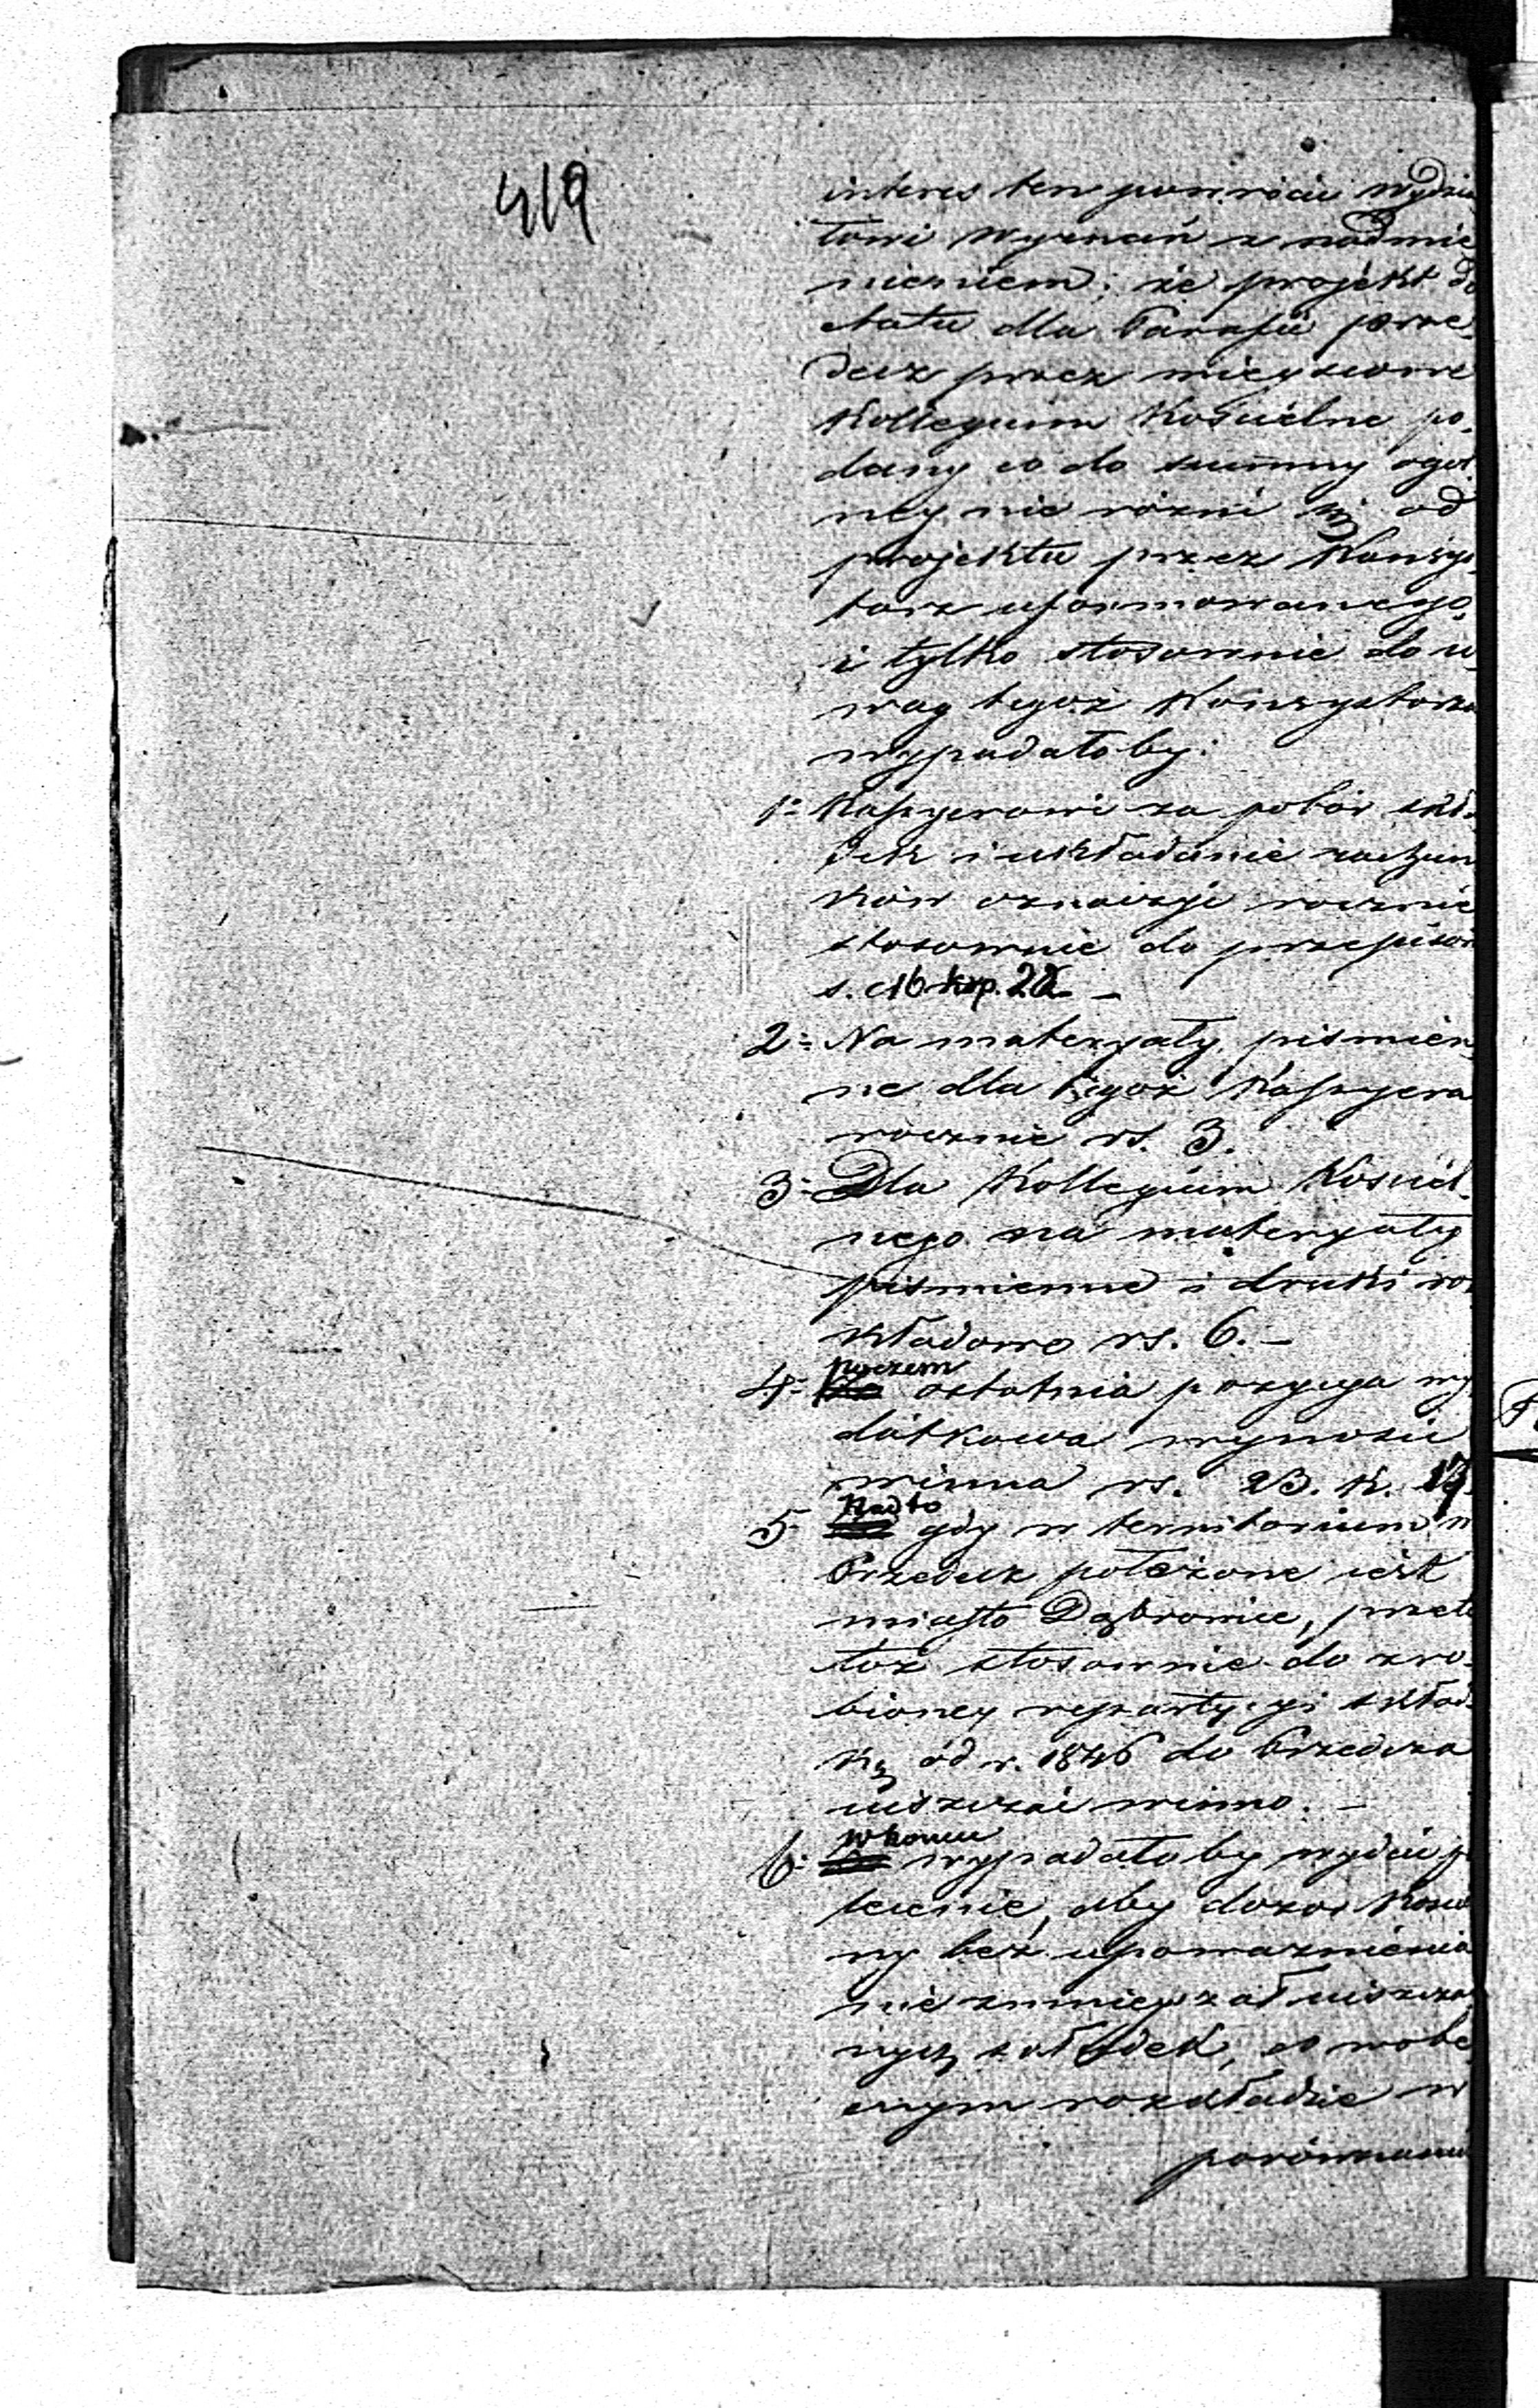 419
interes ten powrócić Wydzia
łowi Wyznań z nadmie
nieniem; że projekt do
etatu dla Parafii Prze
decz przez mieyscowe
Kollegium Kościelne po,
dany co do summy ogól
ney nie różni się od
projektu przez Konsys,
torz uformowanego,
i tylko stosownie do u,
wag tegoż Konsystorza
wypadałoby:
1= Kassyerowi za pobór skła,
dek i układanie rachun
ków oznaczyć rocznie
stosownie do przepisów
s. 16 kop. 22. –
2= Na materyały piśmien,
ne dla tegoż Kassyera
rocznie rs. 3.
3= Dla Kollegium Kościel,
nego na materyały
piśmienne i druki roz
kładowe rs. 6. –
4= poczem ostatnia pozycya wy
datkowa wynosić
winna rs. 23. k.
5= Nadto gdy w territorium m
Przedecz położone jest
miasto Dąbrowice, przeto
toż stosownie do zro,
bioney repartycyi skład
kę od r. 1846 do Przedcza
uiszczać winno. –
6= w końcu wypadałoby wydać po
lecenie, aby dozór Kości
ny bez upoważnienia
nie zmnieyszał uiszcza
nych składek, co w obe,
cnym rozkładzie w
porównaniu